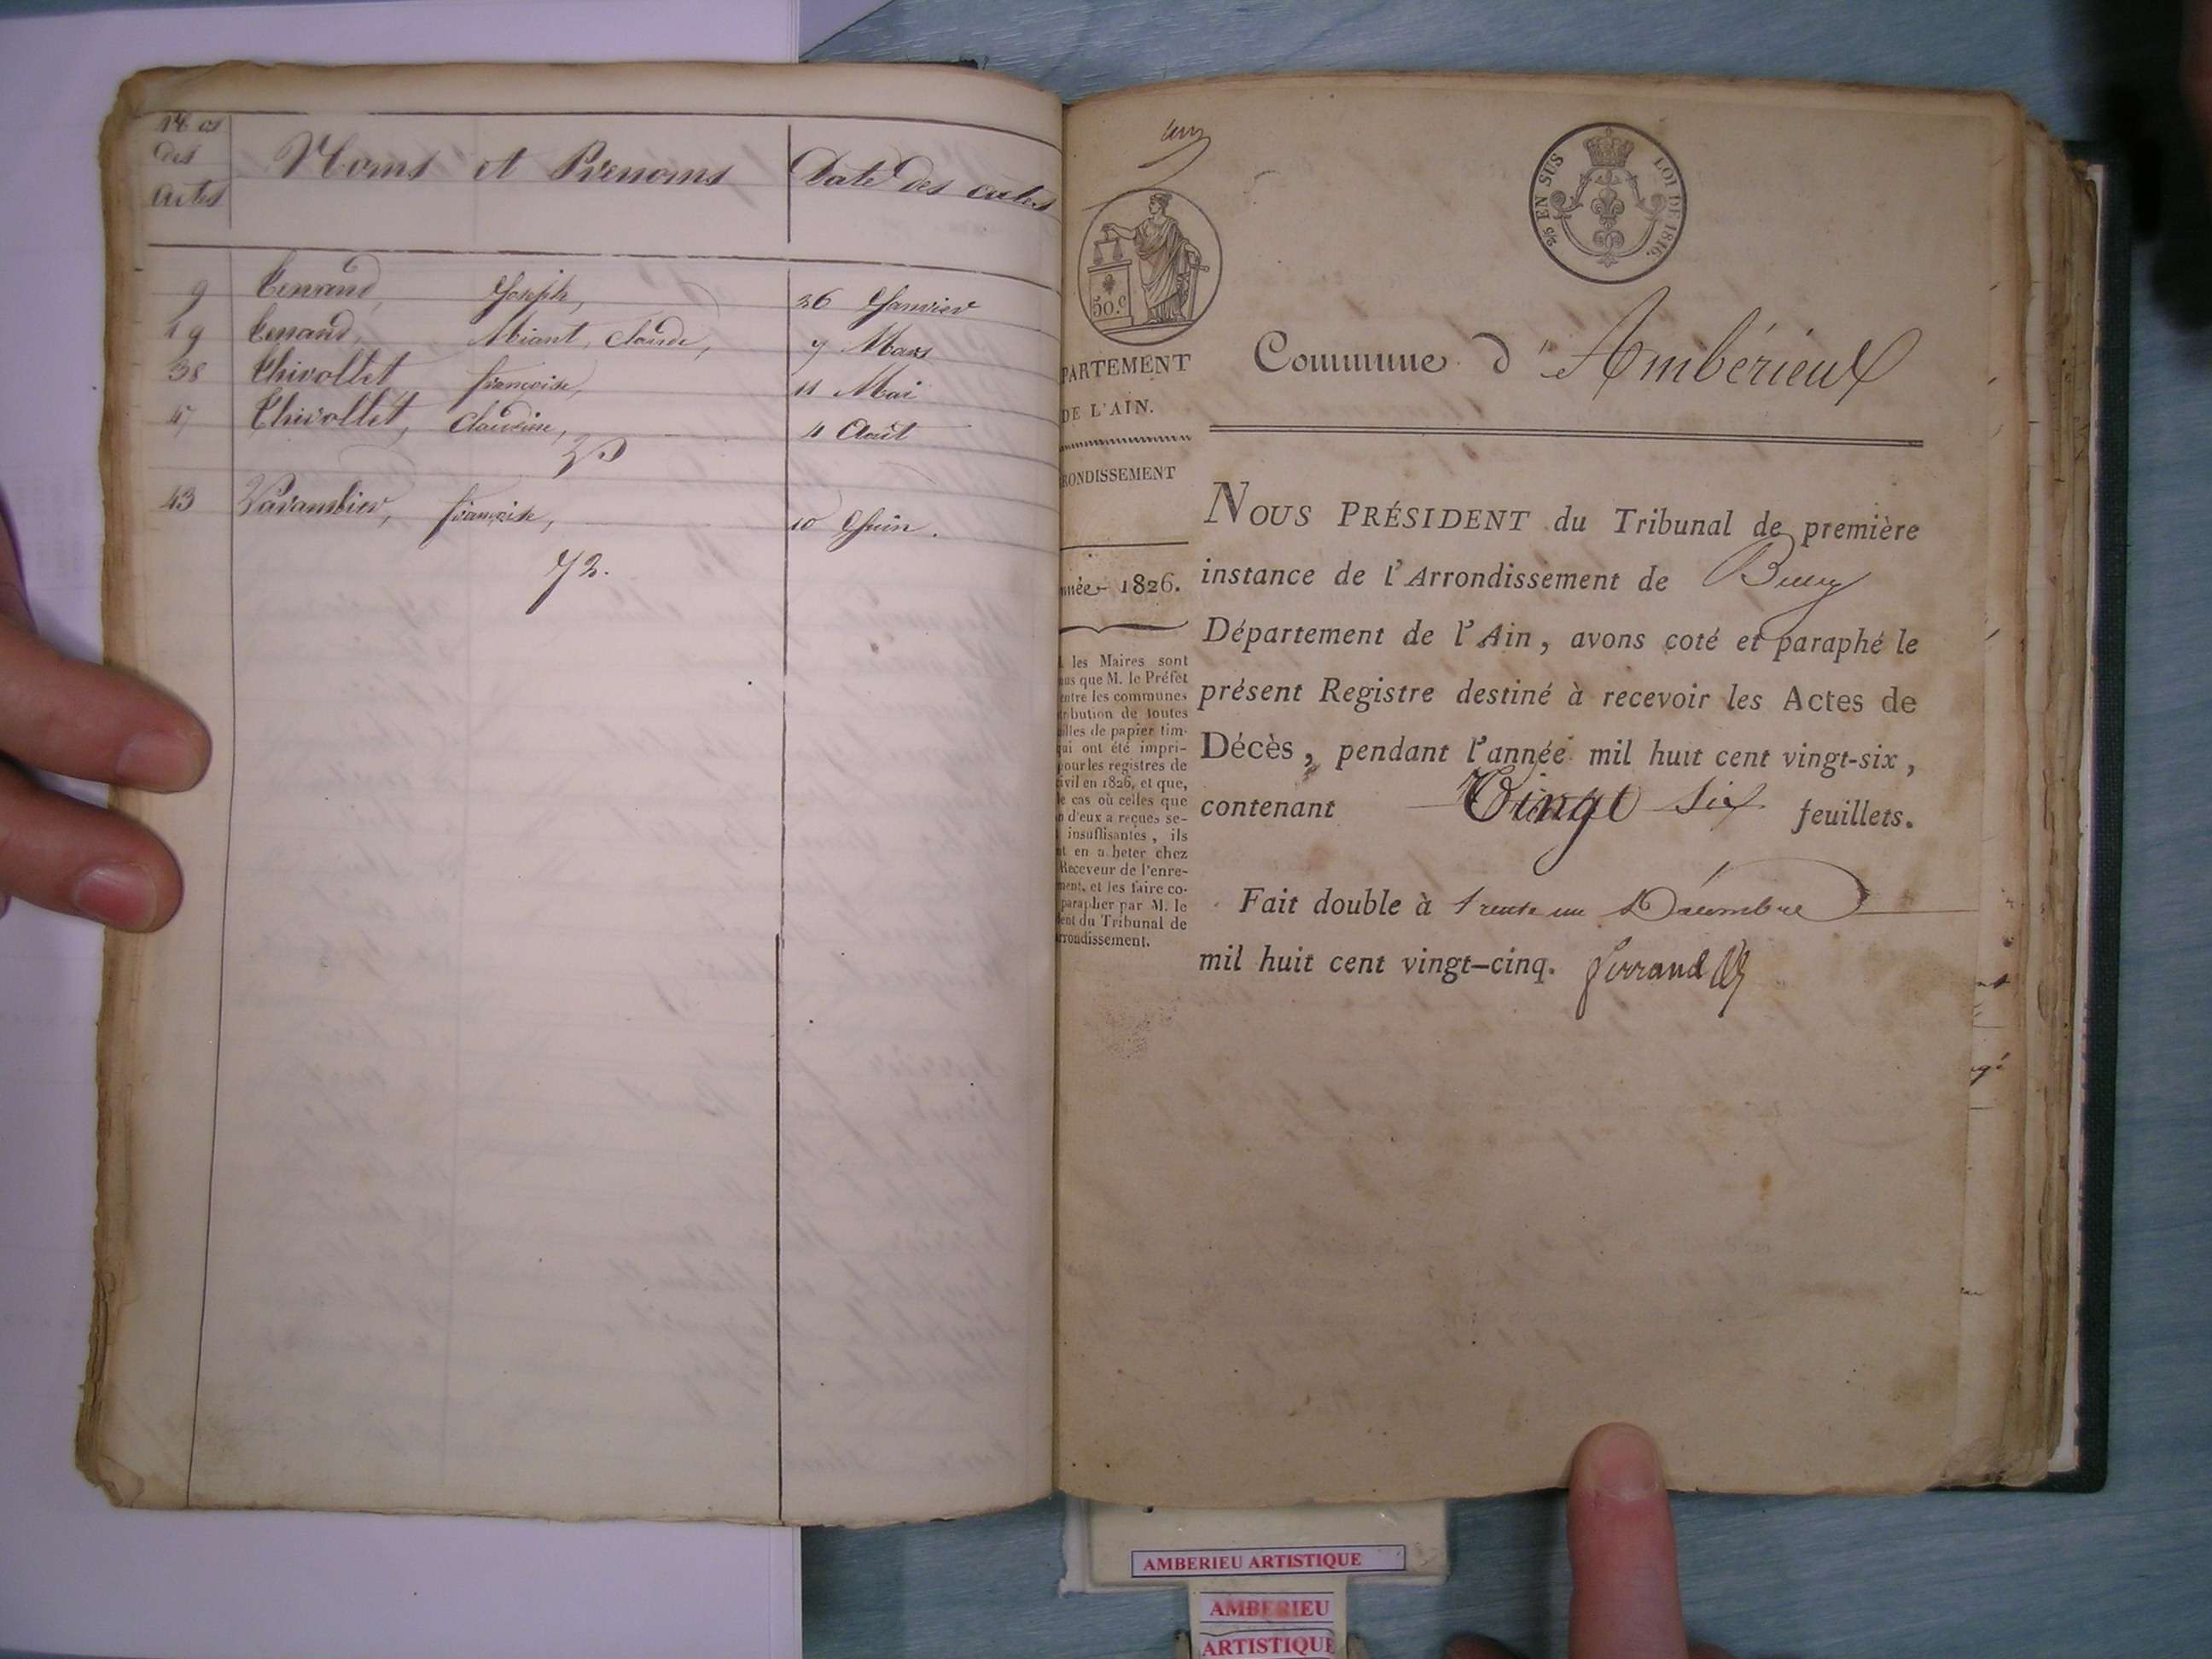 N.os
des
actes
Noms et Prenoms
Date des actes
9 Tenand, Joseph, 26 Janvier
19 Tenand, Claude, 7 Mars
38 Thivollet françoise, 11 Mai
47 Thivollet, Claudine, 4 Août
43 françoise, 10 Juin.
72.
50.c
2/5 EN SUS LOI DE 1816.
PARTEMENT
DE L'AIN.
RONDISSEMENT
nnée 1826.
les Maires sont
que M. le Préfet
entre les communes
tribution de toutes
illes de papier tim-
qui ont été impri-
pour les registres de
ivil en 1826, et que,
le cas où celles que
n d'eux a reçues se-
insuffisantes, ils
nt en acheter chez
Receveur de l'enre-
ment, et les faire co-
parapher par M. le
ent du Tribunal de
rrondissement.
Commune d'Ambérieux
NOUS PRÉSIDENT du Tribunal de première
instance de l'Arrondissement de
Département de l'Ain, avons coté et paraphé le
présent Registre destiné à recevoir les Actes de
Décès, pendant l'année mil huit cent vingt-six,
contenant Vingt Six feuillets.
Fait double à trente un Décembre
mil huit cent vingt-cinq. ferrand
AMBERIEU ARTISTIQUE
AMBERIEU
ARTISTIQUE